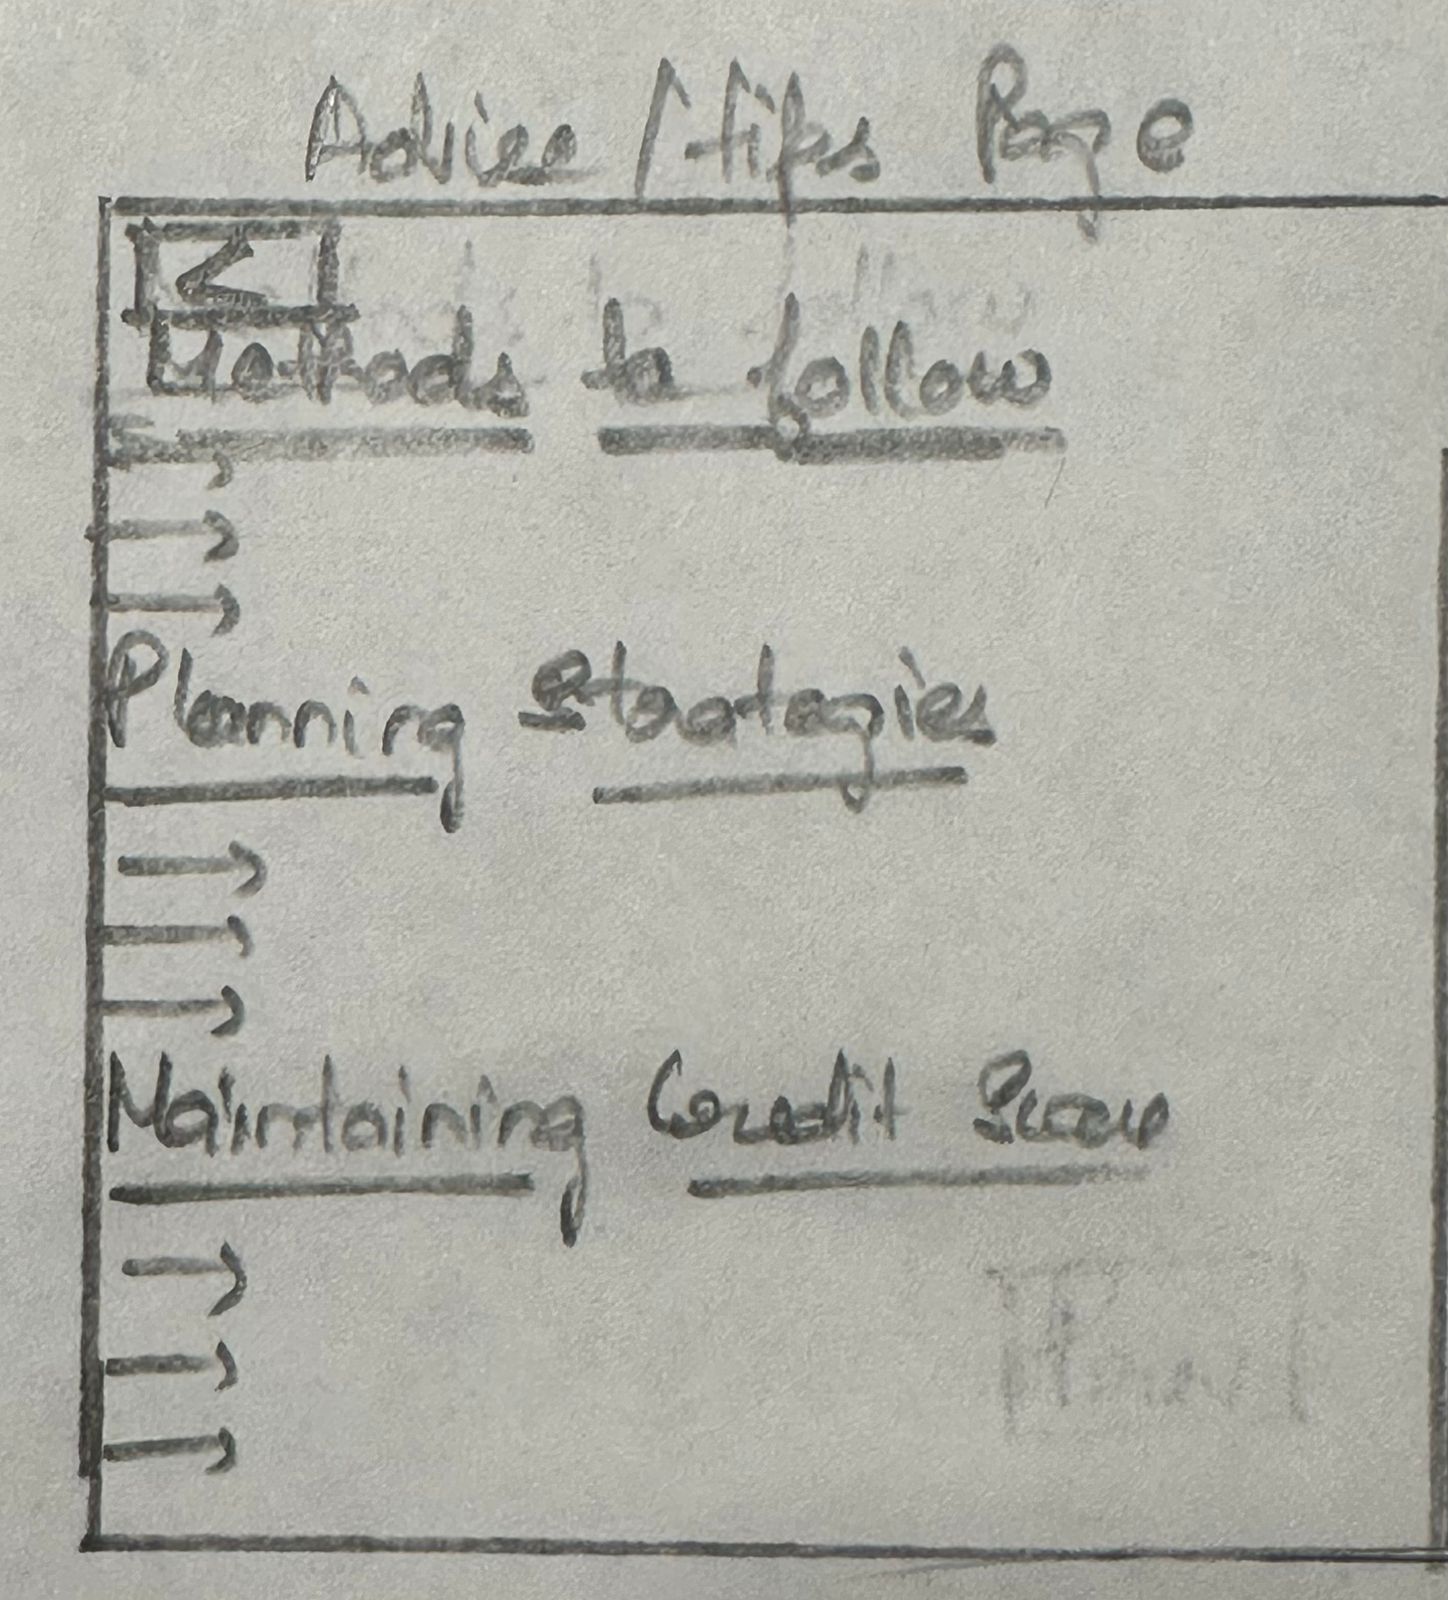 Advice / tips Page
<
Methods to follow
→
→
→
Planning Strategies
→
→
→
Maintaining Credit Score
→
→
→